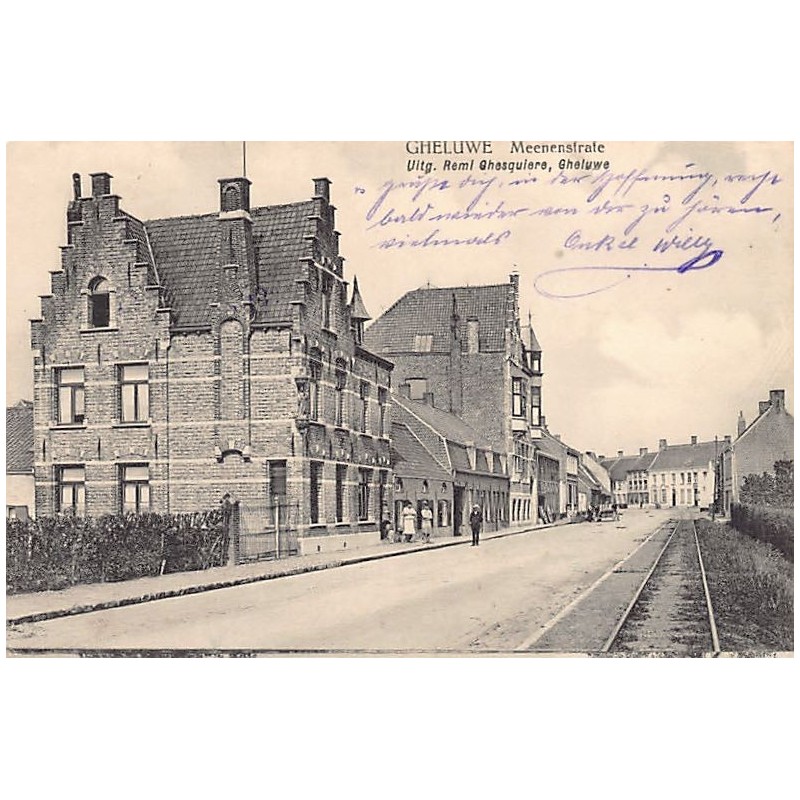 GHELUWE Meenenstrate
Uitg. Remi Ghesquiere, Gheluwe
grüße dich, in der Hoffnung, recht
bald wieder von dir zu hören,
vielmals Onkel Willy